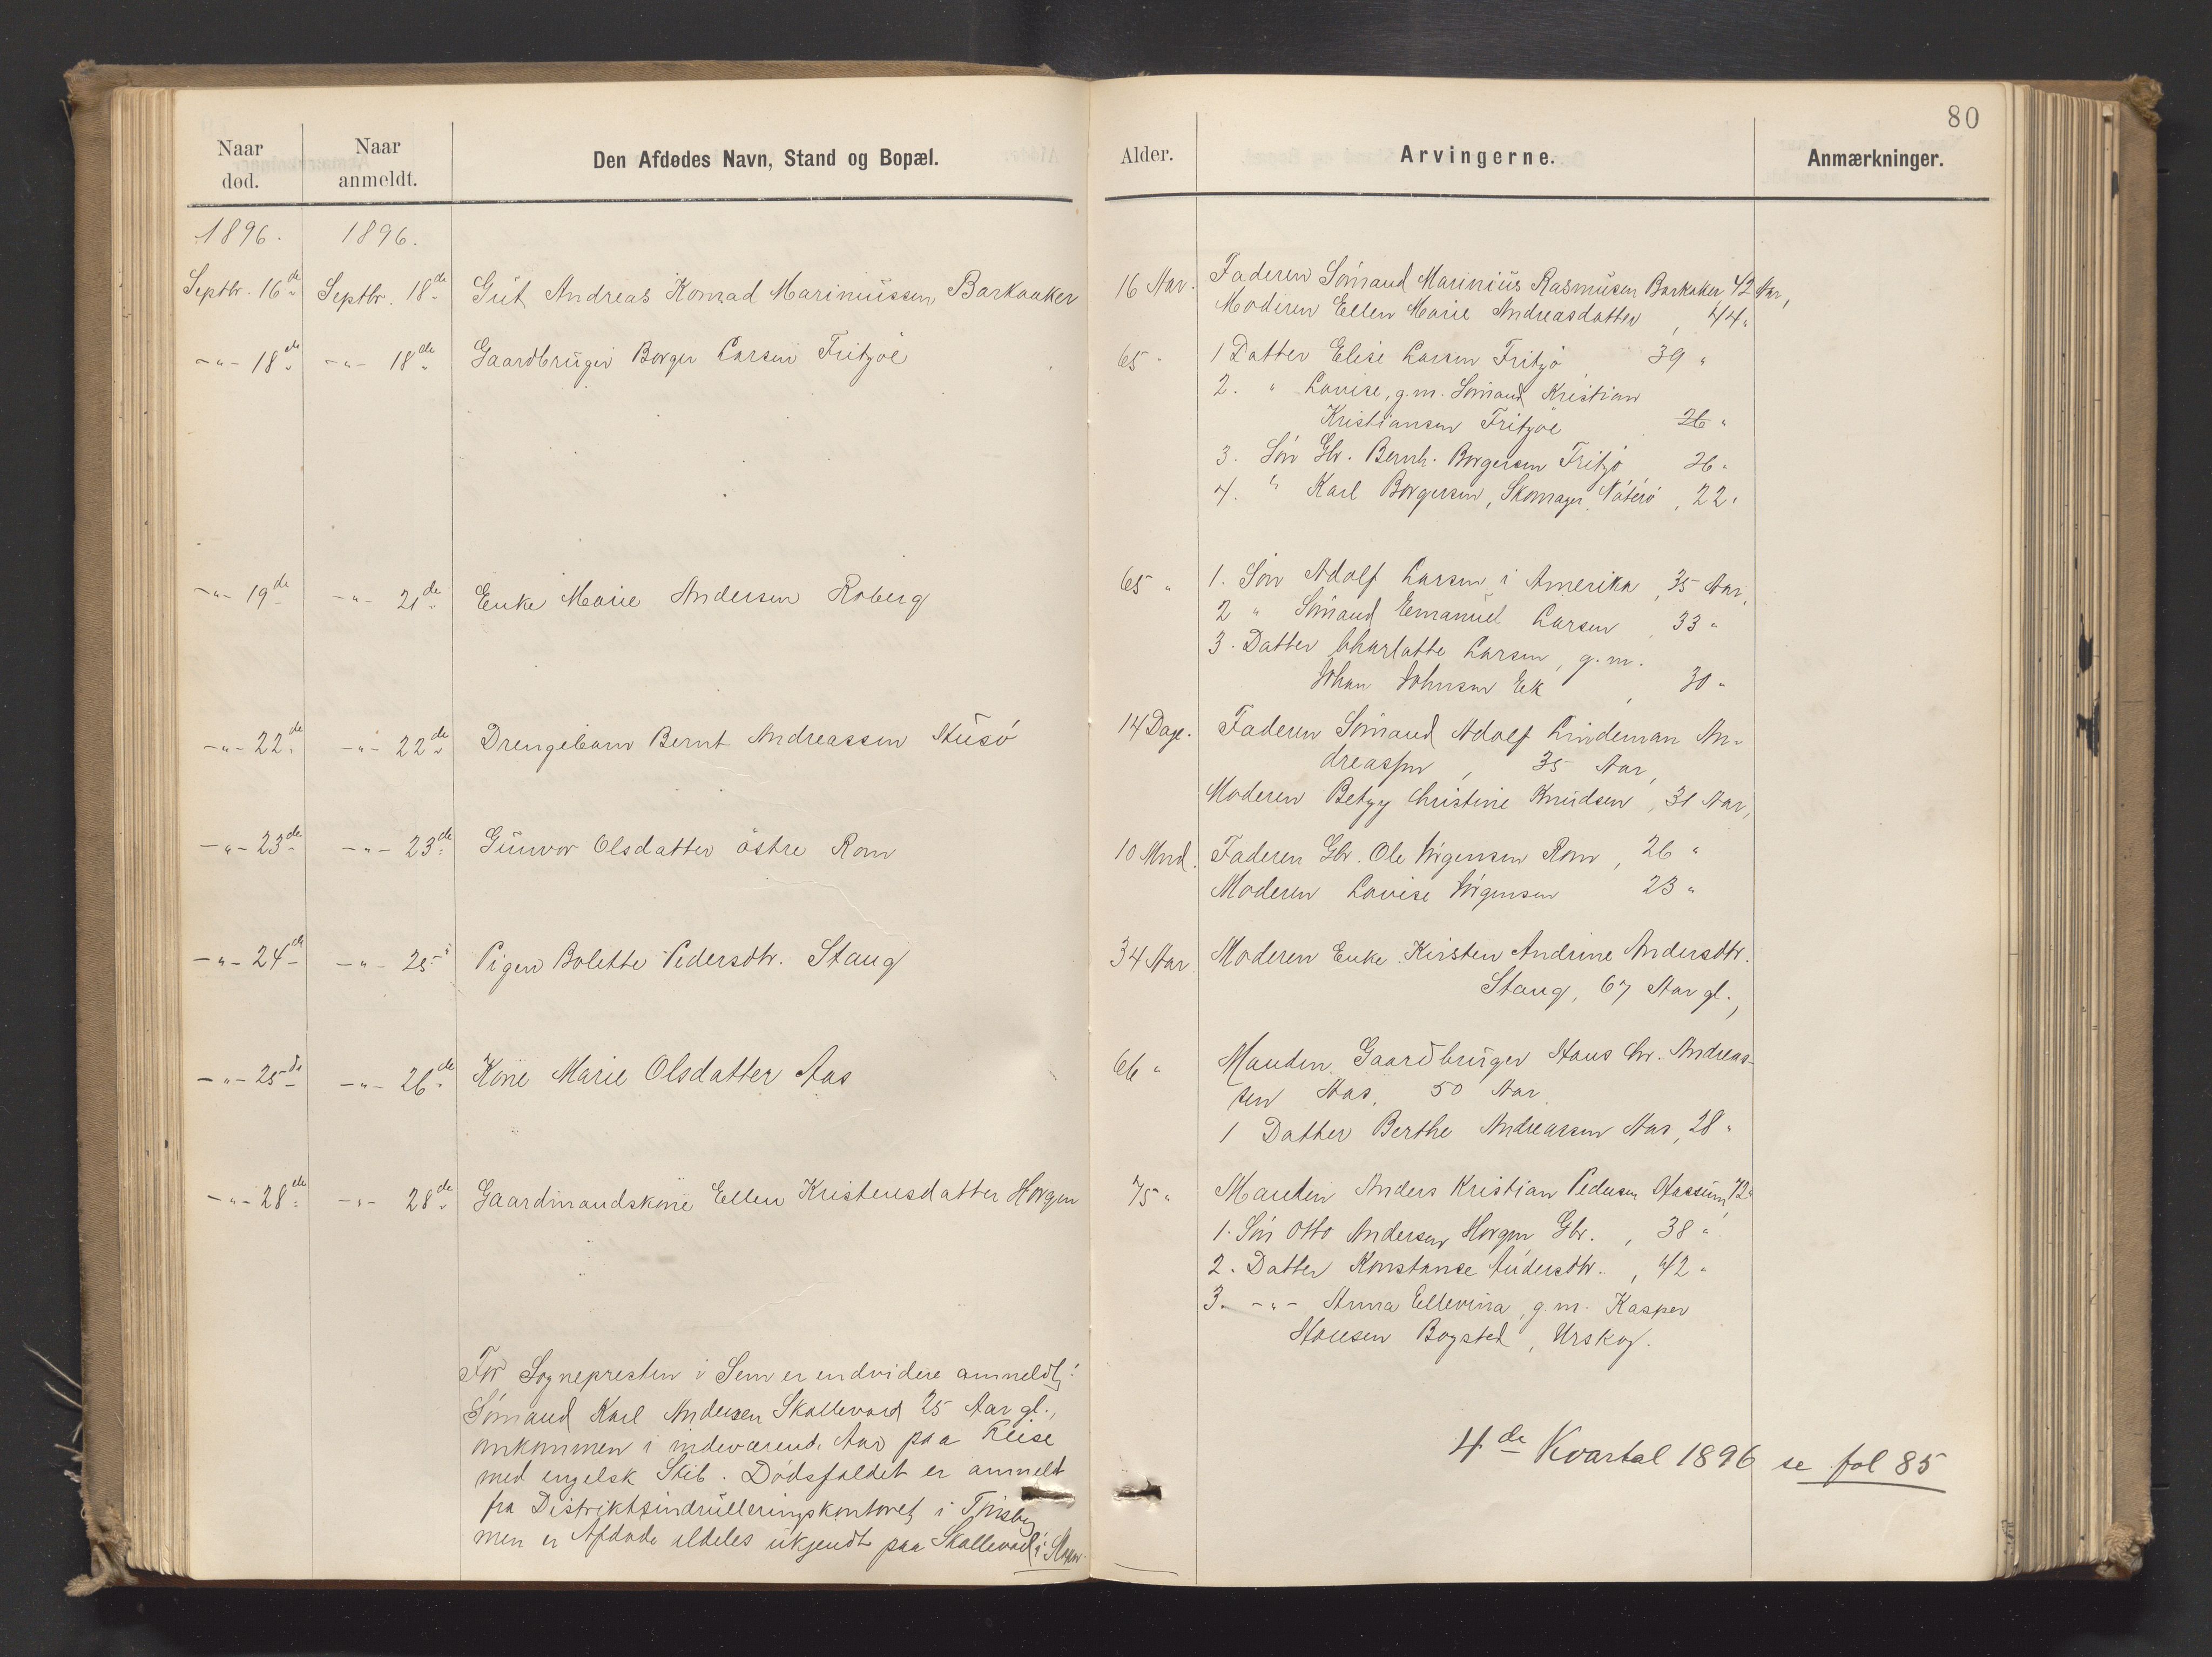 80
Naar død.
Naar anmeldt.
Den Afdødes Navn, Stand og Bopæl.
Alder.
Arvingerne.
Anmærkninger.
1896. 1896.
Septbr. 16de Septbr. 18de Gut Andreas Konrad Marinussen Barkaaker 16 Aar.
Faderen Sømand Marinius Rasmusen Barkaker 42 Aar,
Moderen Ellen Marie Andreasdatter, 44"
-"- 18de -"- 18de Gaardbruger Borger Larsen Fritzöe 65 "
1 Datter Elise Larsen Fritzö, 39 "
2. " Lovise, g.m. Sömand Kristian
Kristiansen Fritzöe 26 "
3. Sön Gbr. Bernh. Borgersen Fritzö 26 "
4. " Karl Borgersen, Skomager, Nöterö, 22 "
-"- 19de -"- 21de Enke Marie Andersen Roberg 65 "
1. Sön Adolf Larsen i Amerika, 35 Aar,
2 " Sömand Emanuel Larsen, 33 "
3. Datter Charlotte Larsen, g.m.
Johan Johnsen Eek, 30 "
-"- 22de -"- 22de Drengebarn Bernt Andreassen Husö 14 Dage.
Faderen Sömand Adolf Lindeman An-
dreassen, 35 Aar,
Moderen Betzy Christine Knudsen, 31 Aar,
-"- 23de -"- 23de Gunvor Olsdatter östre Rom 10 Mnd.
Faderen Gbr. Ole Jörgensen Rom, 26 "
Moderen Lovise Jörgensen 23 "
-"- 24de -"- 25 Pigen Bolette Pedersdtr. Stang 34 Aar
Moderen Enke Kirsten Andrine Andersdtr.
Stang, 67 Aar gl.,
-"- 25de -"- 26de Kone Marie Olsdatter Aas 66 "
Manden, Gaardbruger Hans Chr. Andreas-
sen Aas, 50 Aar.
1 Datter Berthe Andreassen Aas, 28 "
-"- 28de -"- 28de Gaardmandskone Ellen Kristensdatter Horgen 75 "
Manden Anders Kristian Pedersen 72 "
1. Sön Otto Andersen Horgen Gbr., 38 "
2. Datter Konstanse Andersdtr., 42 "
3. -"- Anna Ellevina, g.m. Kasper
Hansen Bogsted, Urskog.
For Sognepresten i Sem er endvidere anmeldt:
Sömand Karl Andersen Skallevold 25 Aar gl.,
omkommen i indeværende Aar paa Reise
med engelsk Skib. Dödsfaldet er anmeldt
fra Distriktsindrulleringskontoret i Tönsberg
men er Afdöde aldeles ukjendt paa Skallevold i
4de Kvartal 1896 se fol 85